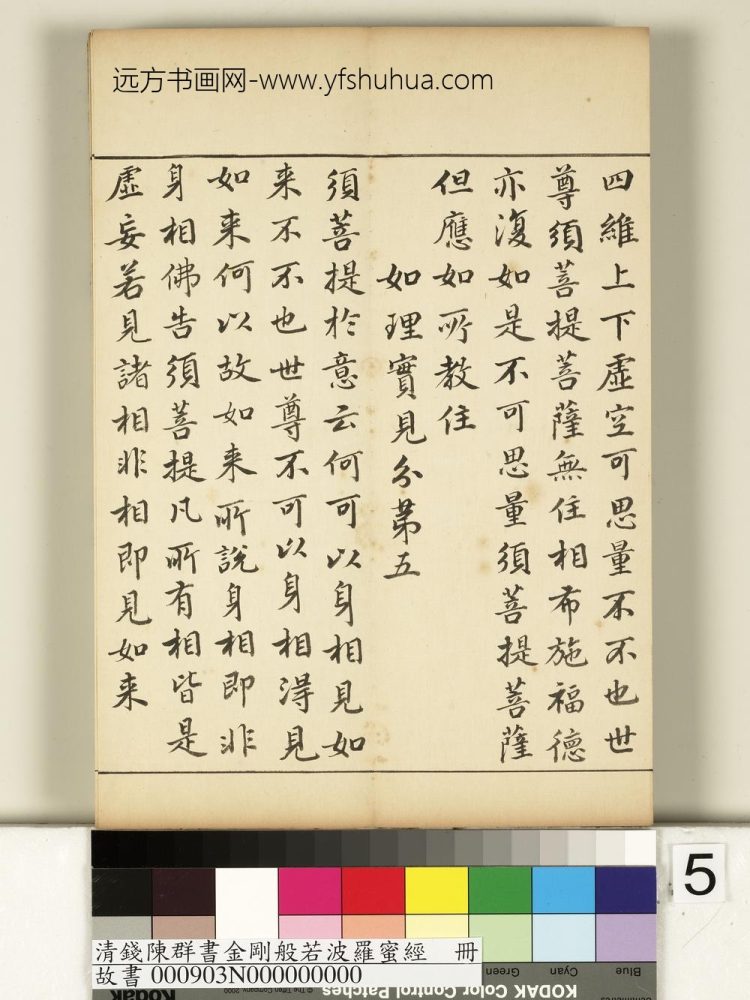 远方书画网-www.yfshuhua.com
四維上下虛空可思量不不也世
尊須菩提菩薩無住相布施福德
亦復如是不可思量須菩提菩薩
但應如所教住
如理實見分第五
須菩提於意云何可以身相見如
来不不也世尊不可以身相得見
如来何以故如来所說身相即非
身相佛告須菩提凡所有相皆是
虛妄若見諸相非相即見如来
5
清錢陳群書金剛般若波羅蜜經 冊
故書 000903N000000000
Green
Cyan
Blue
© The Tiffen Company, 2000
Kodak
KODAK Color Control Patches